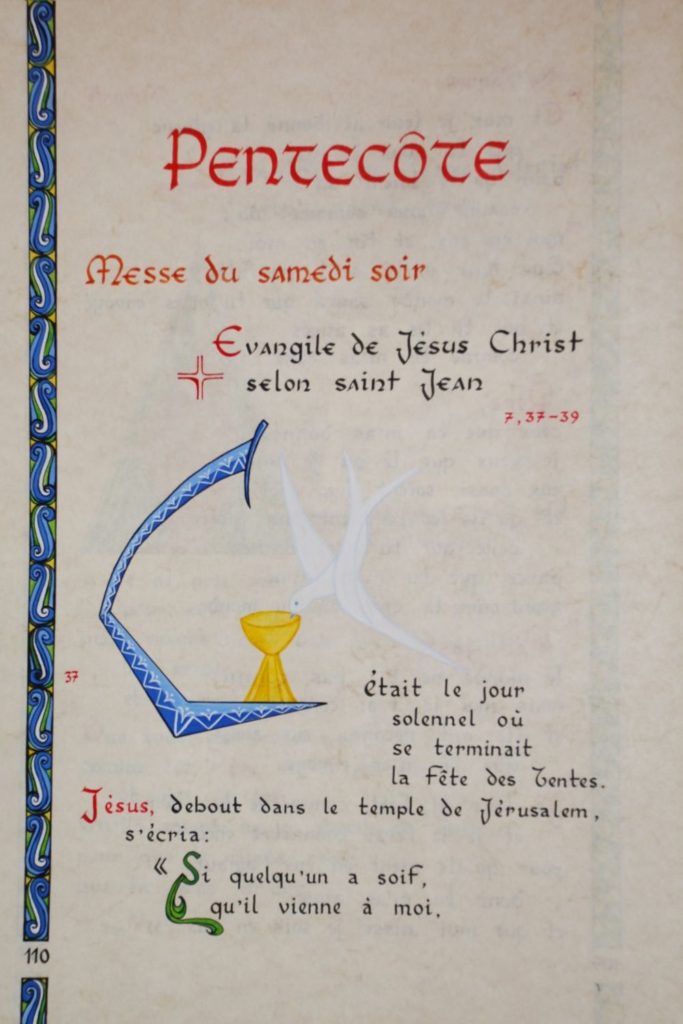 Pentecôte
Messe du samedi soir
Evangile de Jésus Christ
selon saint Jean
7, 37-39
37
C'était le jour
solennel où
se terminait
la Fête des Tentes.
Jésus, debout dans le temple de Jérusalem,
s'écria:
« Si quelqu'un a soif,
qu'il vienne à moi,
110